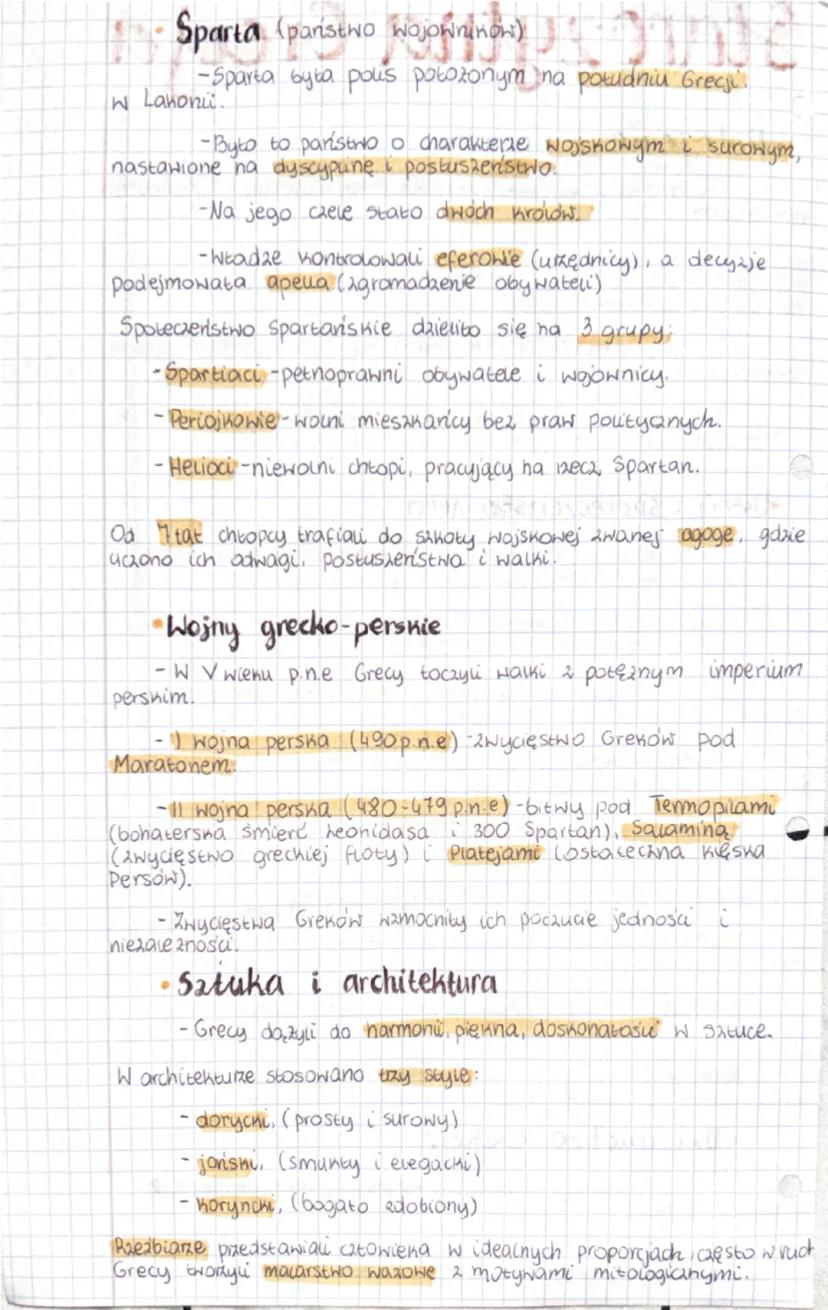 • Sparta (państwo wojowników)
-Sparta była polis położonym na południu Grecji,
w Lakonii.
-Było to państwo o charakterze wojskowym i surowym,
nastawione na dyscyplinę i posłuszeństwo.
-Na jego czele stało dwóch królów.
-Władze kontrolowali eferowie (urzędnicy), a decyzje
podejmowała apella (zgromadzenie obywateli)
Społeczeństwo Spartańskie dzieliło się na 3 grupy:
-Spartiaci -pełnoprawni obywatele i wojownicy.
-Periojkowie -wolni mieszkańcy bez praw politycznych.
-Helioci -niewolni chłopi, pracujący na rzecz Spartan.
Od 7 lat chłopcy trafiali do szkoły wojskowej zwanej agoge, gdzie
uczono ich odwagi, posłuszeństwa i walki.
• Wojny grecko-perskie
- W V wieku p.n.e Grecy toczyli walki z potężnym imperium
perskim.
- I wojna perska (490 p.n.e) -zwycięstwo Greków pod
Maratonem.
-II wojna perska (480-479 p.n.e) -bitwy pod Termopilami
(bohaterska śmierć Leonidasa i 300 Spartan), Salaminą
(zwycięstwo greckiej floty) i Platejami (ostateczna klęska
Persów).
- Zwycięstwa Greków wzmocniły ich poczucie jedności i
niezależności.
• Sztuka i architektura
- Grecy dążyli do harmonii, piękna, doskonałości w sztuce.
W architekturze stosowano trzy style:
- dorycki, (prosty i surowy)
- joński, (smukły i elegacki)
- koryncki, (bogato zdobiony)
Rzeźbiarze przedstawiali człowieka w idealnych proporcjach, często w ruch
Grecy tworzyli malarstwo wazowe z motywami mitologicznymi.